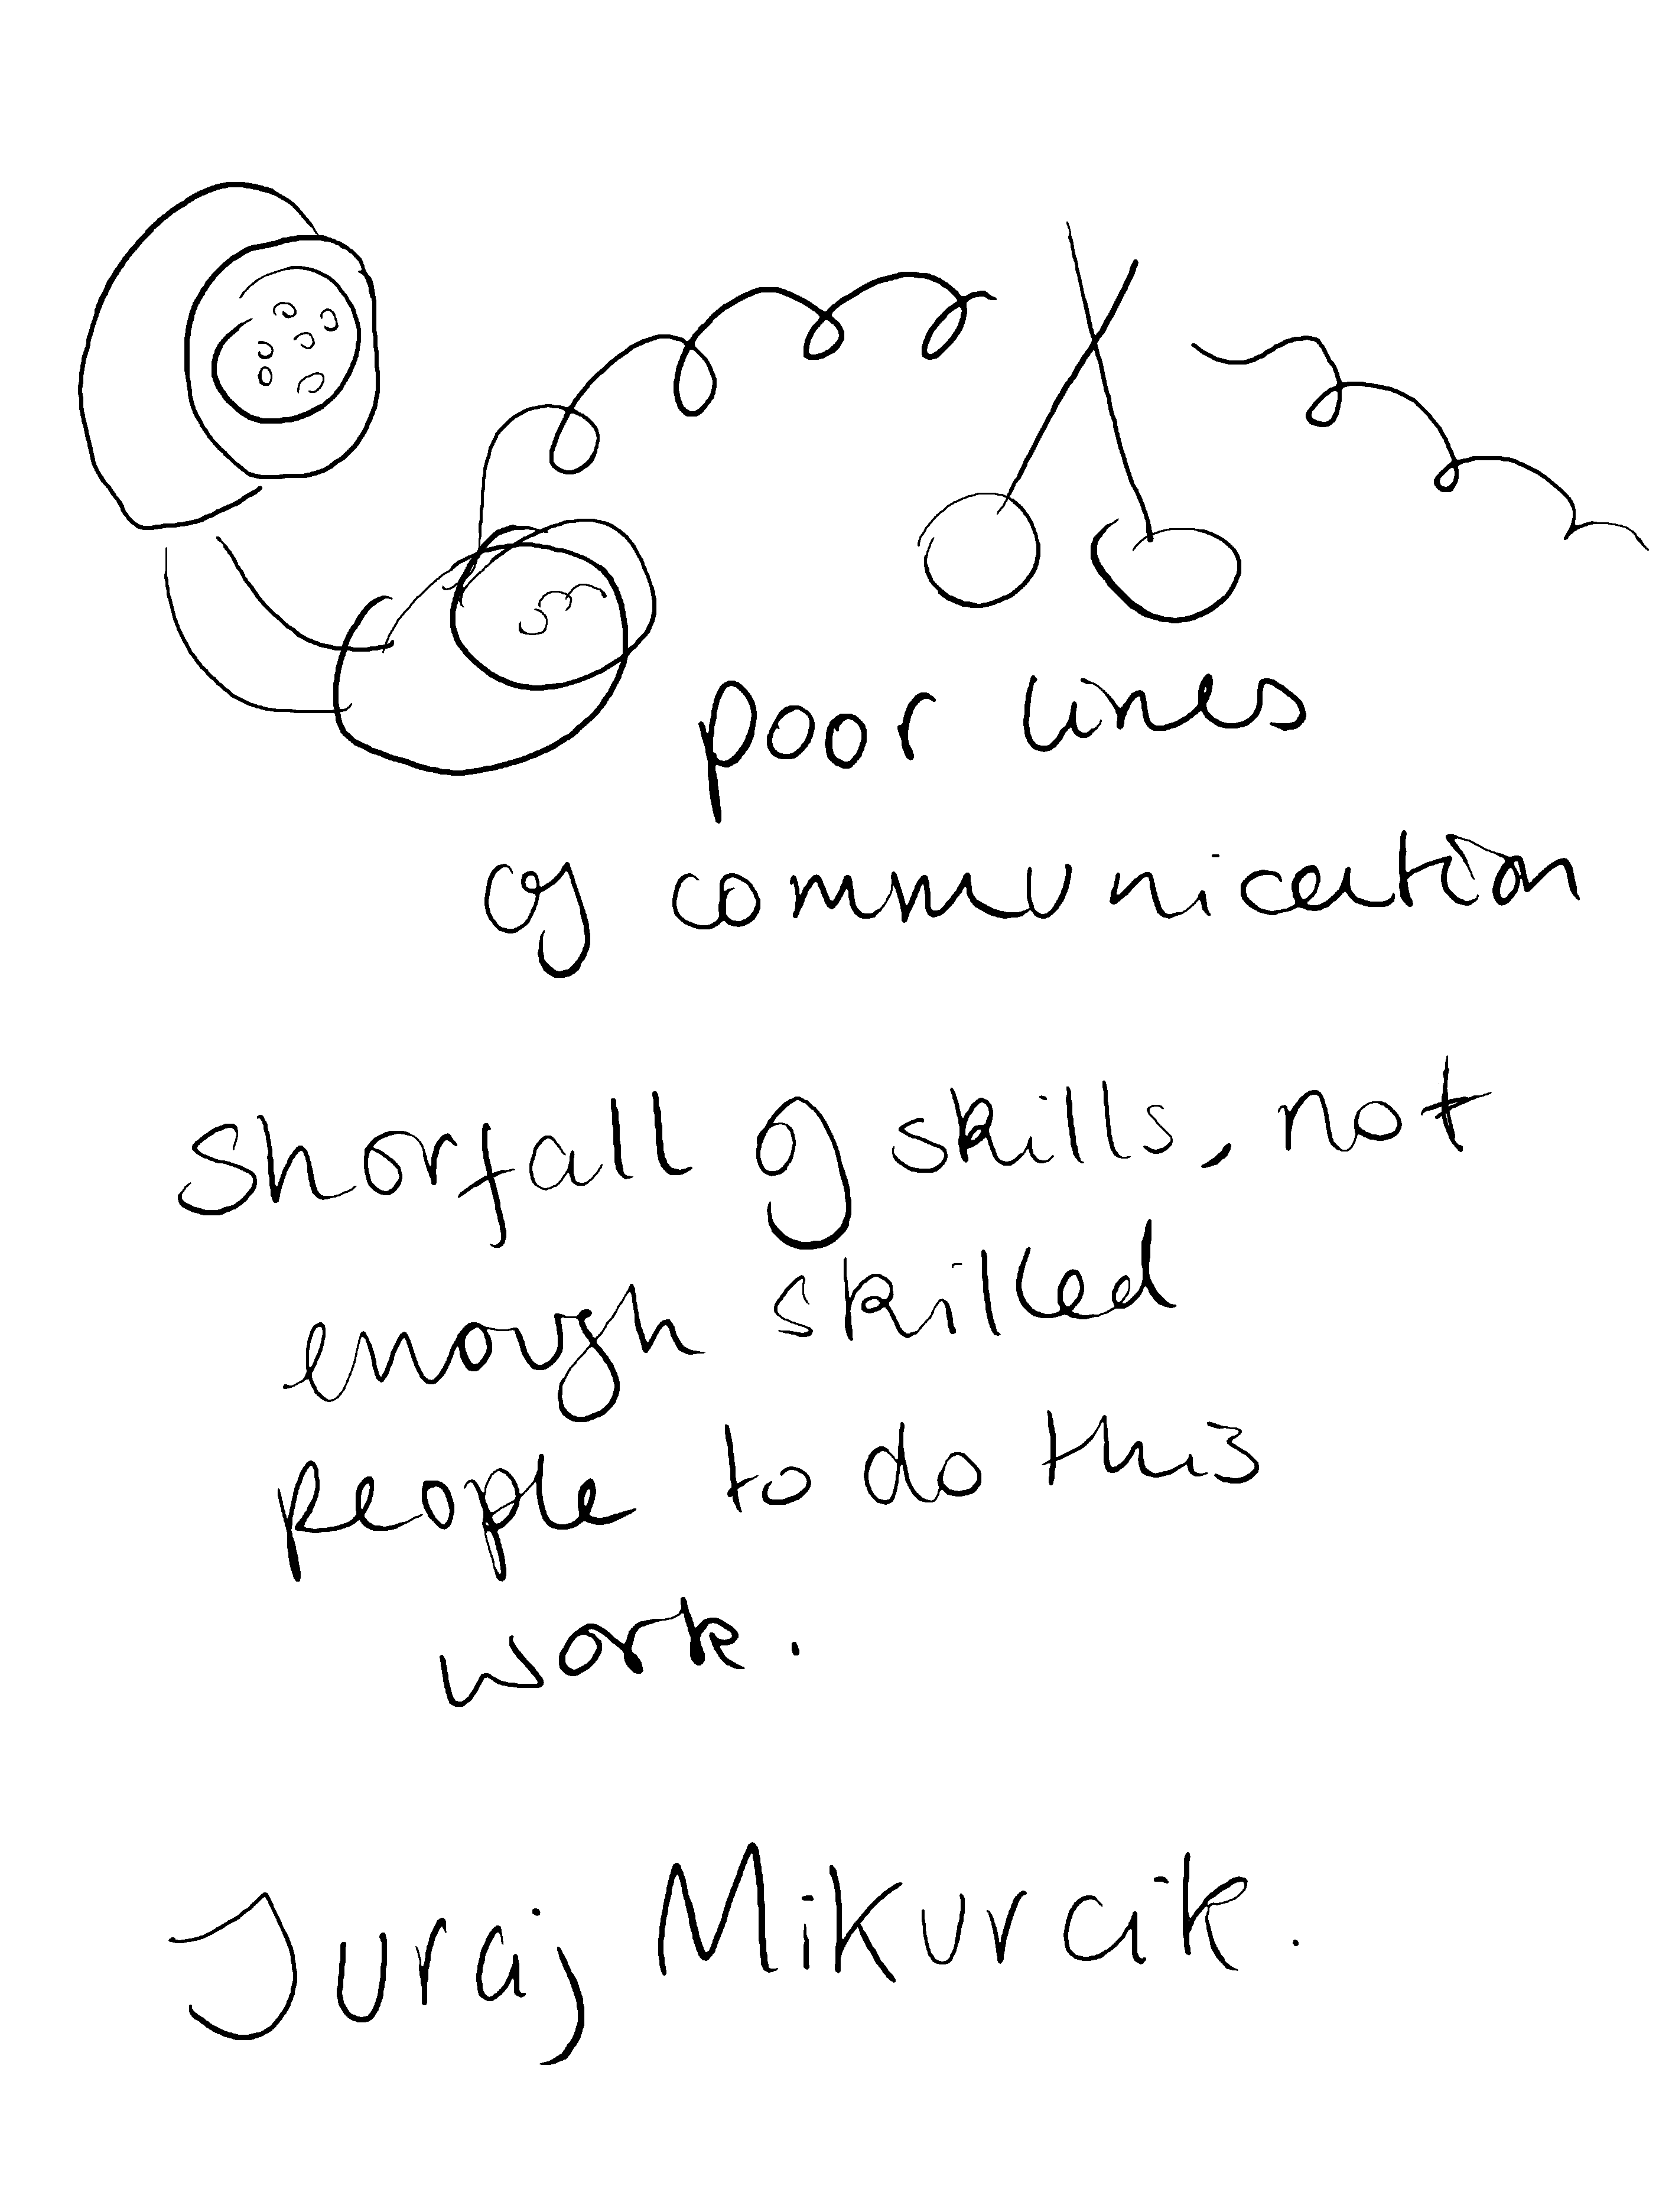 poor lines
of communication
Shorfall of skills, not
enough skilled
people to do this
work.
Juraj Mikurcik.